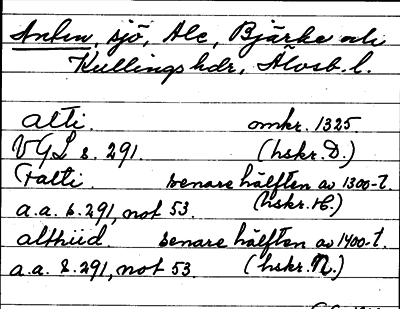 Anten, sjö, Ale, Bjärke och
Kullings hdr, Älvsb. l.
alti. omkr. 1325.
VGL s. 291. (hskr. D.)
alti. senare hälften av 1300-t.
a.a. s. 291, not 53. (hskr. H.)
althiid. senare hälften av 1400-t.
a.a. s. 291, not 53. (hskr. N.)